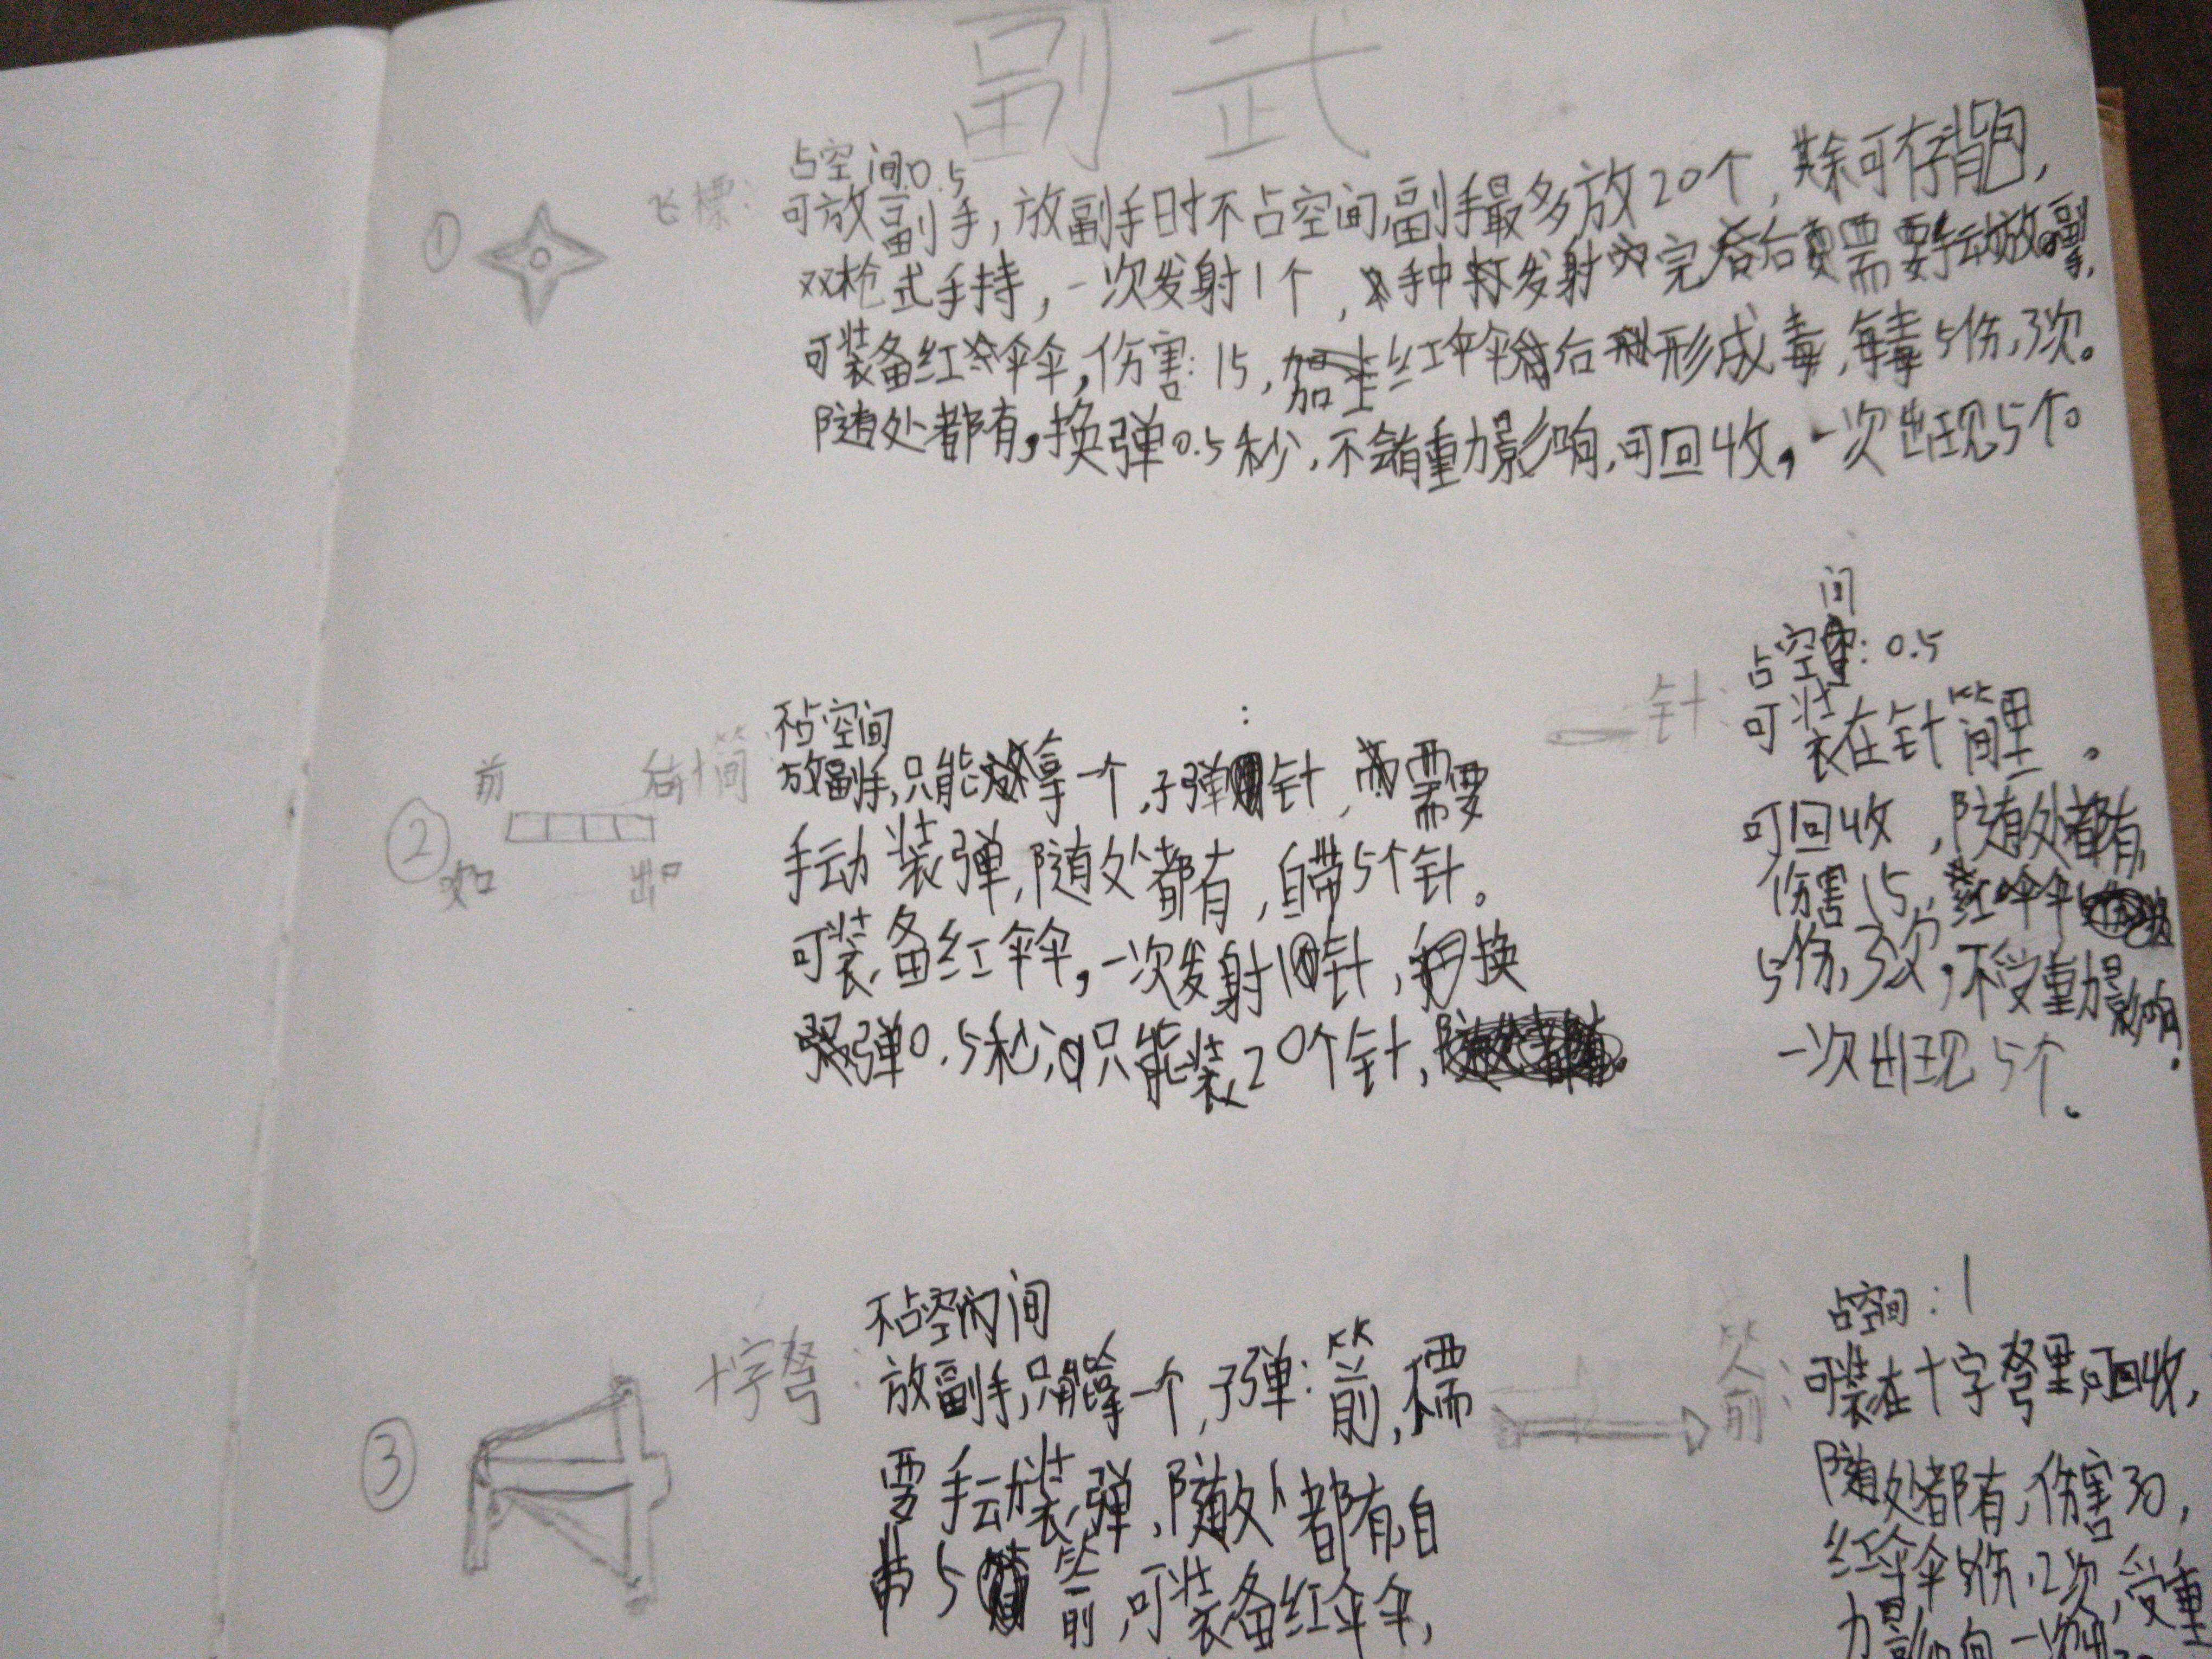 副武
① 飞標：
占空间0.5
可放副手，放副手时不占空间，副手最多放20个，其余可存背包，
双枪式手持，一次发射1个，手中发射完后需要手动放副手，
可装备红伞伞，伤害：15，加上红伞伞后形成毒，每毒5伤，3次。
随处都有，换弹0.5秒，不会有重力影响，可回收，一次出现5个。
②
前
后
出口
不占空间
放副手，只能拿一个，子弹：针，需要
手动装弹，随处都有，自带5个针。
可装备红伞伞，一次发射1针，换
弹0.5秒，只能装20个针，
针：
占空间：0.5
可装在针筒里。
可回收，随处都有，
伤害15，红伞伞
5伤，3次，不受重力影响。
一次出现5个。
③ 十字弩：
不占空间
放副手，只能拿一个，子弹：箭，需
要手动装弹，随处都有，自
带5箭，可装备红伞伞，
箭：
占空间：1
可装在十字弩里，可回收，
随处都有，伤害30，
红伞伞5伤，2次，受重
力影响，一次出